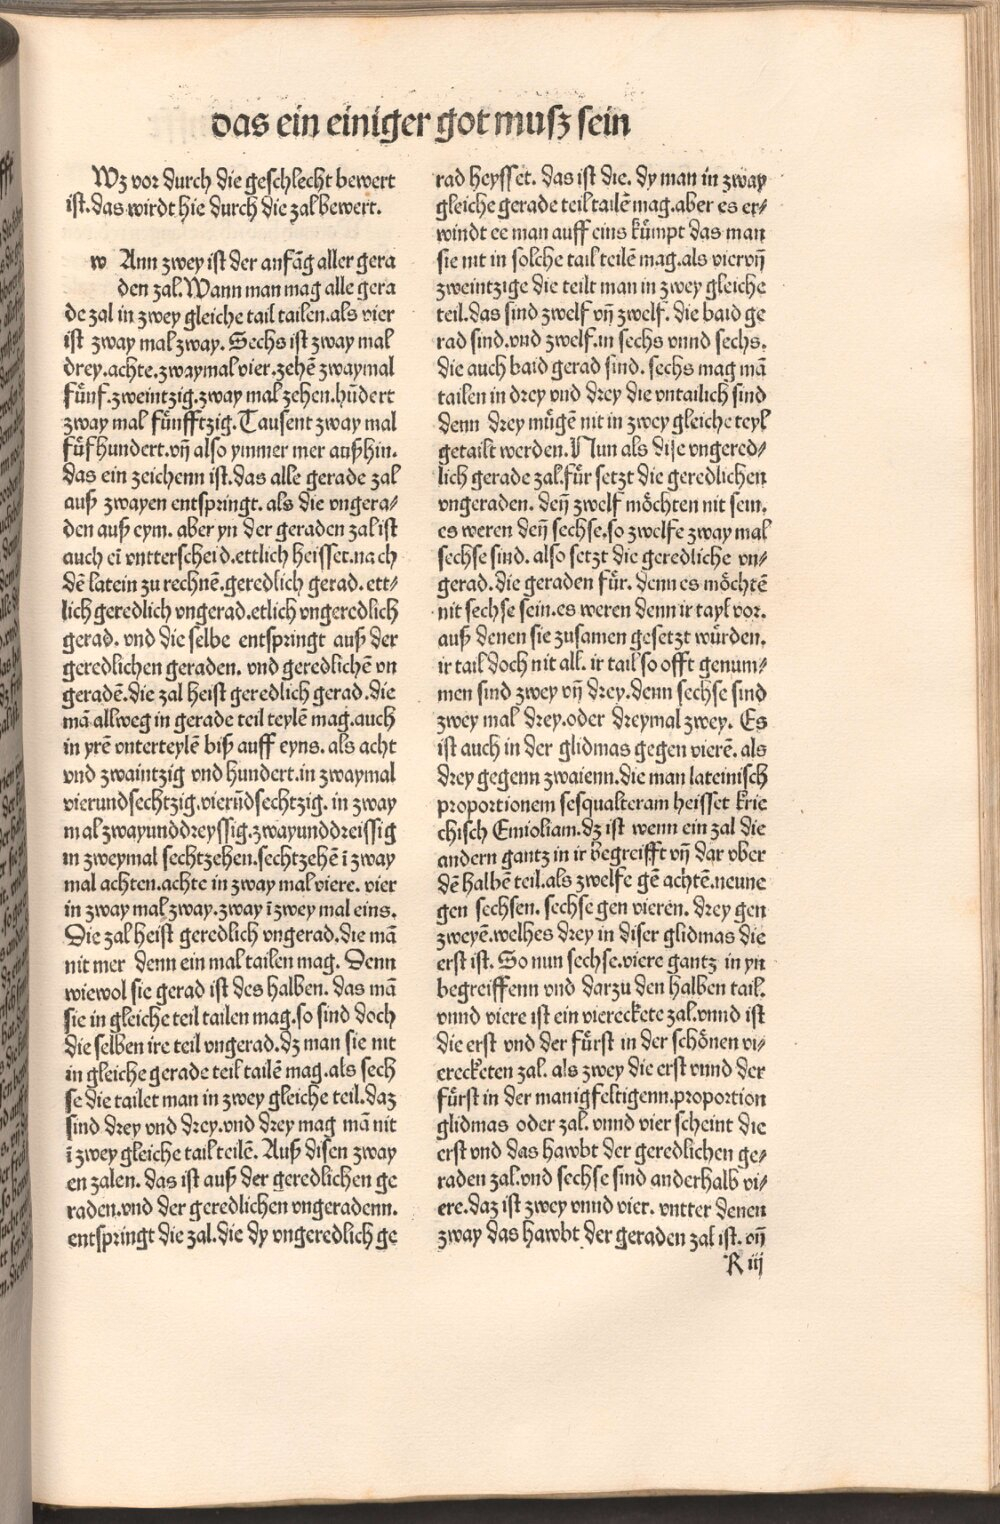 das ein einiger got musz sein
Wz vor durch die geschlecht bewert
ist.das wirdt hie durch die zal bewert.
w Ann zwey ist der anfãg aller gera
den zal.Wann man mag alle gera
de zal in zwey gleiche tail tailen.als vier
ist zway mal zway. Sechs ist zway mal
drey.achte.zwaymal vier.zehẽ zwaymal
fünf.zweintzig.zway mal zehen.hũdert
zway mal fünfftzig.Tausent zway mal
fũfhundert.vñ also ymmer mer außhin.
das ein zeichenn ist.das alle gerade zal
auß zwayen entspringt. als die vngera⸗
den auß eym. aber yn der geraden zal ist
auch eĩ vntterscheid.ettlich heisset.nach
dẽ latein zu rechnẽ.geredlich gerad. ett⸗
lich geredlich vngerad.etlich vngeredlich
gerad. vnd die selbe entspringt auß der
geredlichen geraden. vnd geredlichẽ vn
geradẽ.die zal heist geredlich gerad.die
mã allweg in gerade teil teylẽ mag.auch
in yrẽ vnterteylẽ biß auff eyns. als acht
vnd zwaintzig vnd hundert.in zwaymal
vierundsechtzig.vierũdsechtzig. in zway
mal zwayunddreyssig.zwayunddreissig
in zweymal sechtzehen.sechtzehẽ ĩ zway
mal achten.achte in zway mal viere. vier
in zway mal zway.zway ĩ zwey mal eins.
Die zal heist geredlich vngerad.die mã
nit mer denn ein mal tailen mag. Denn
wiewol sie gerad ist des halben. das mã
sie in gleiche teil tailen mag.so sind doch
die selben ire teil vngerad.dz man sie nit
in gleiche gerade teil tailẽ mag.als sech
se die tailet man in zwey gleiche teil.daz
sind drey vnd drey.vnd drey mag mã nit
ĩ zwey gleiche tail teilẽ. Auß disen zway
en zalen. das ist auß der geredlichen ge
raden.vnd der geredlichen vngeradenn.
entspringt die zal.die dy vngeredlich ge
rad heysset. das ist die. dy man in zway
gleiche gerade teil tailẽ mag.aber es er⸗
windt ee man auff eins kümpt das man
sie nit in solche tail teilẽ mag.als viervñ
zweintzige die teilt man in zwey gleiche
teil.das sind zwelf vñ zwelf. die baid ge
rad sind.vnd zwelf.in sechs vnnd sechs.
die auch baid gerad sind. sechs mag mã
tailen in drey vnd drey die vntailich sind
denn drey mügẽ nit in zwey gleiche teyl
getailt werden.Nun als dise vngered⸗
lich gerade zal.für setzt die geredlichen
vngeraden. deñ zwelf möchten nit sein.
es weren deñ sechse.so zwelfe zway mal
sechse sind. also setzt die geredliche vn⸗
gerad.die geraden für. denn es möchtẽ
nit sechse sein.es weren denn ir tayl vor.
auß denen sie zusamen gesetzt würden.
ir tail doch nit all. ir tail so offt genum⸗
men sind zwey vñ drey.denn sechse sind
zwey mal drey.oder dreymal zwey. Es
ist auch in der glidmas gegen vierẽ. als
drey gegenn zwaienn.die man lateinisch
proportionem sesqualteram heisset krie
chisch Emioliam.dz ist wenn ein zal die
andern gantz in ir begreifft vñ dar vber
dẽ halbẽ teil.als zwelfe gẽ achtẽ.neune
gen sechsen. sechse gen vieren. drey gen
zweyẽ.welhes drey in diser glidmas die
erst ist. So nun sechse.viere gantz in yn
begreiffenn vnd darzu den halben tail.
vnnd viere ist ein viereckete zal.vnnd ist
die erst vnd der fürst in der schönen vi⸗
erecketen zal. als zwey die erst vnnd der
fürst in der manigfeltigenn.proportion
glidmas oder zal. vnnd vier scheint die
erst vnd das hawbt der geredlichen ge⸗
raden zal.vnd sechse sind anderhalb vi⸗
ere.daz ist zwey vnnd vier. vntter denen
zway das hawbt der geraden zal ist. vñ
R iij